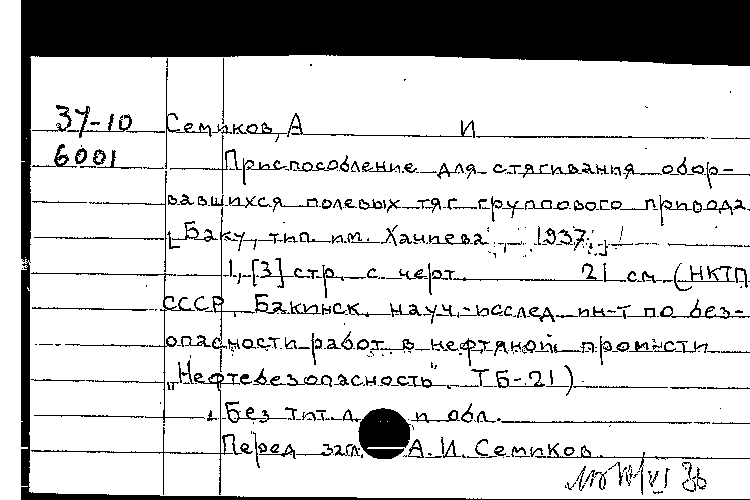 37-10 Семиков, А И
6001 Приспособление для стягивания обор-
вавшихся полевых тяг группового привода
[Баку, тип. им. Ханиева, 1937.]
1, [3] стр. с черт. 21 см (НКТП
СССР. Бакинск. науч.-исслед. ин-т по без-
опасности работ в нефтяной пром-сти
„Нефтебезопасность". ТБ-21)
Без тит. л. и обл.
Перед загл. А. И. Семиков.